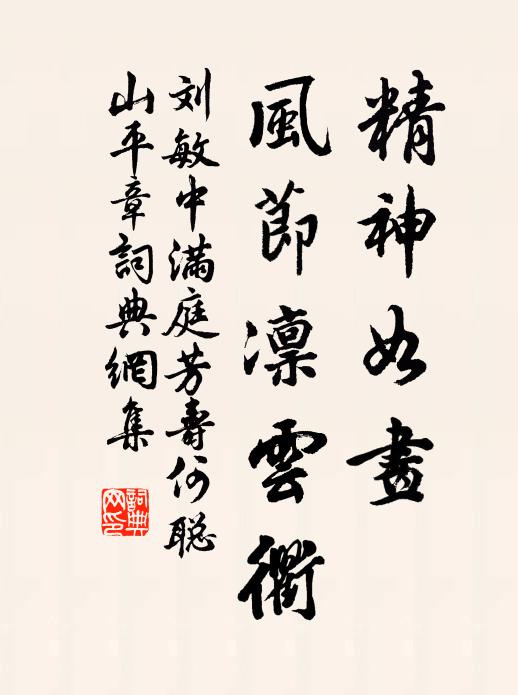 精神如畫
風節凛雲衢
刘敏中满庭芳壽何聪
山平章詞典網集
詞典网印